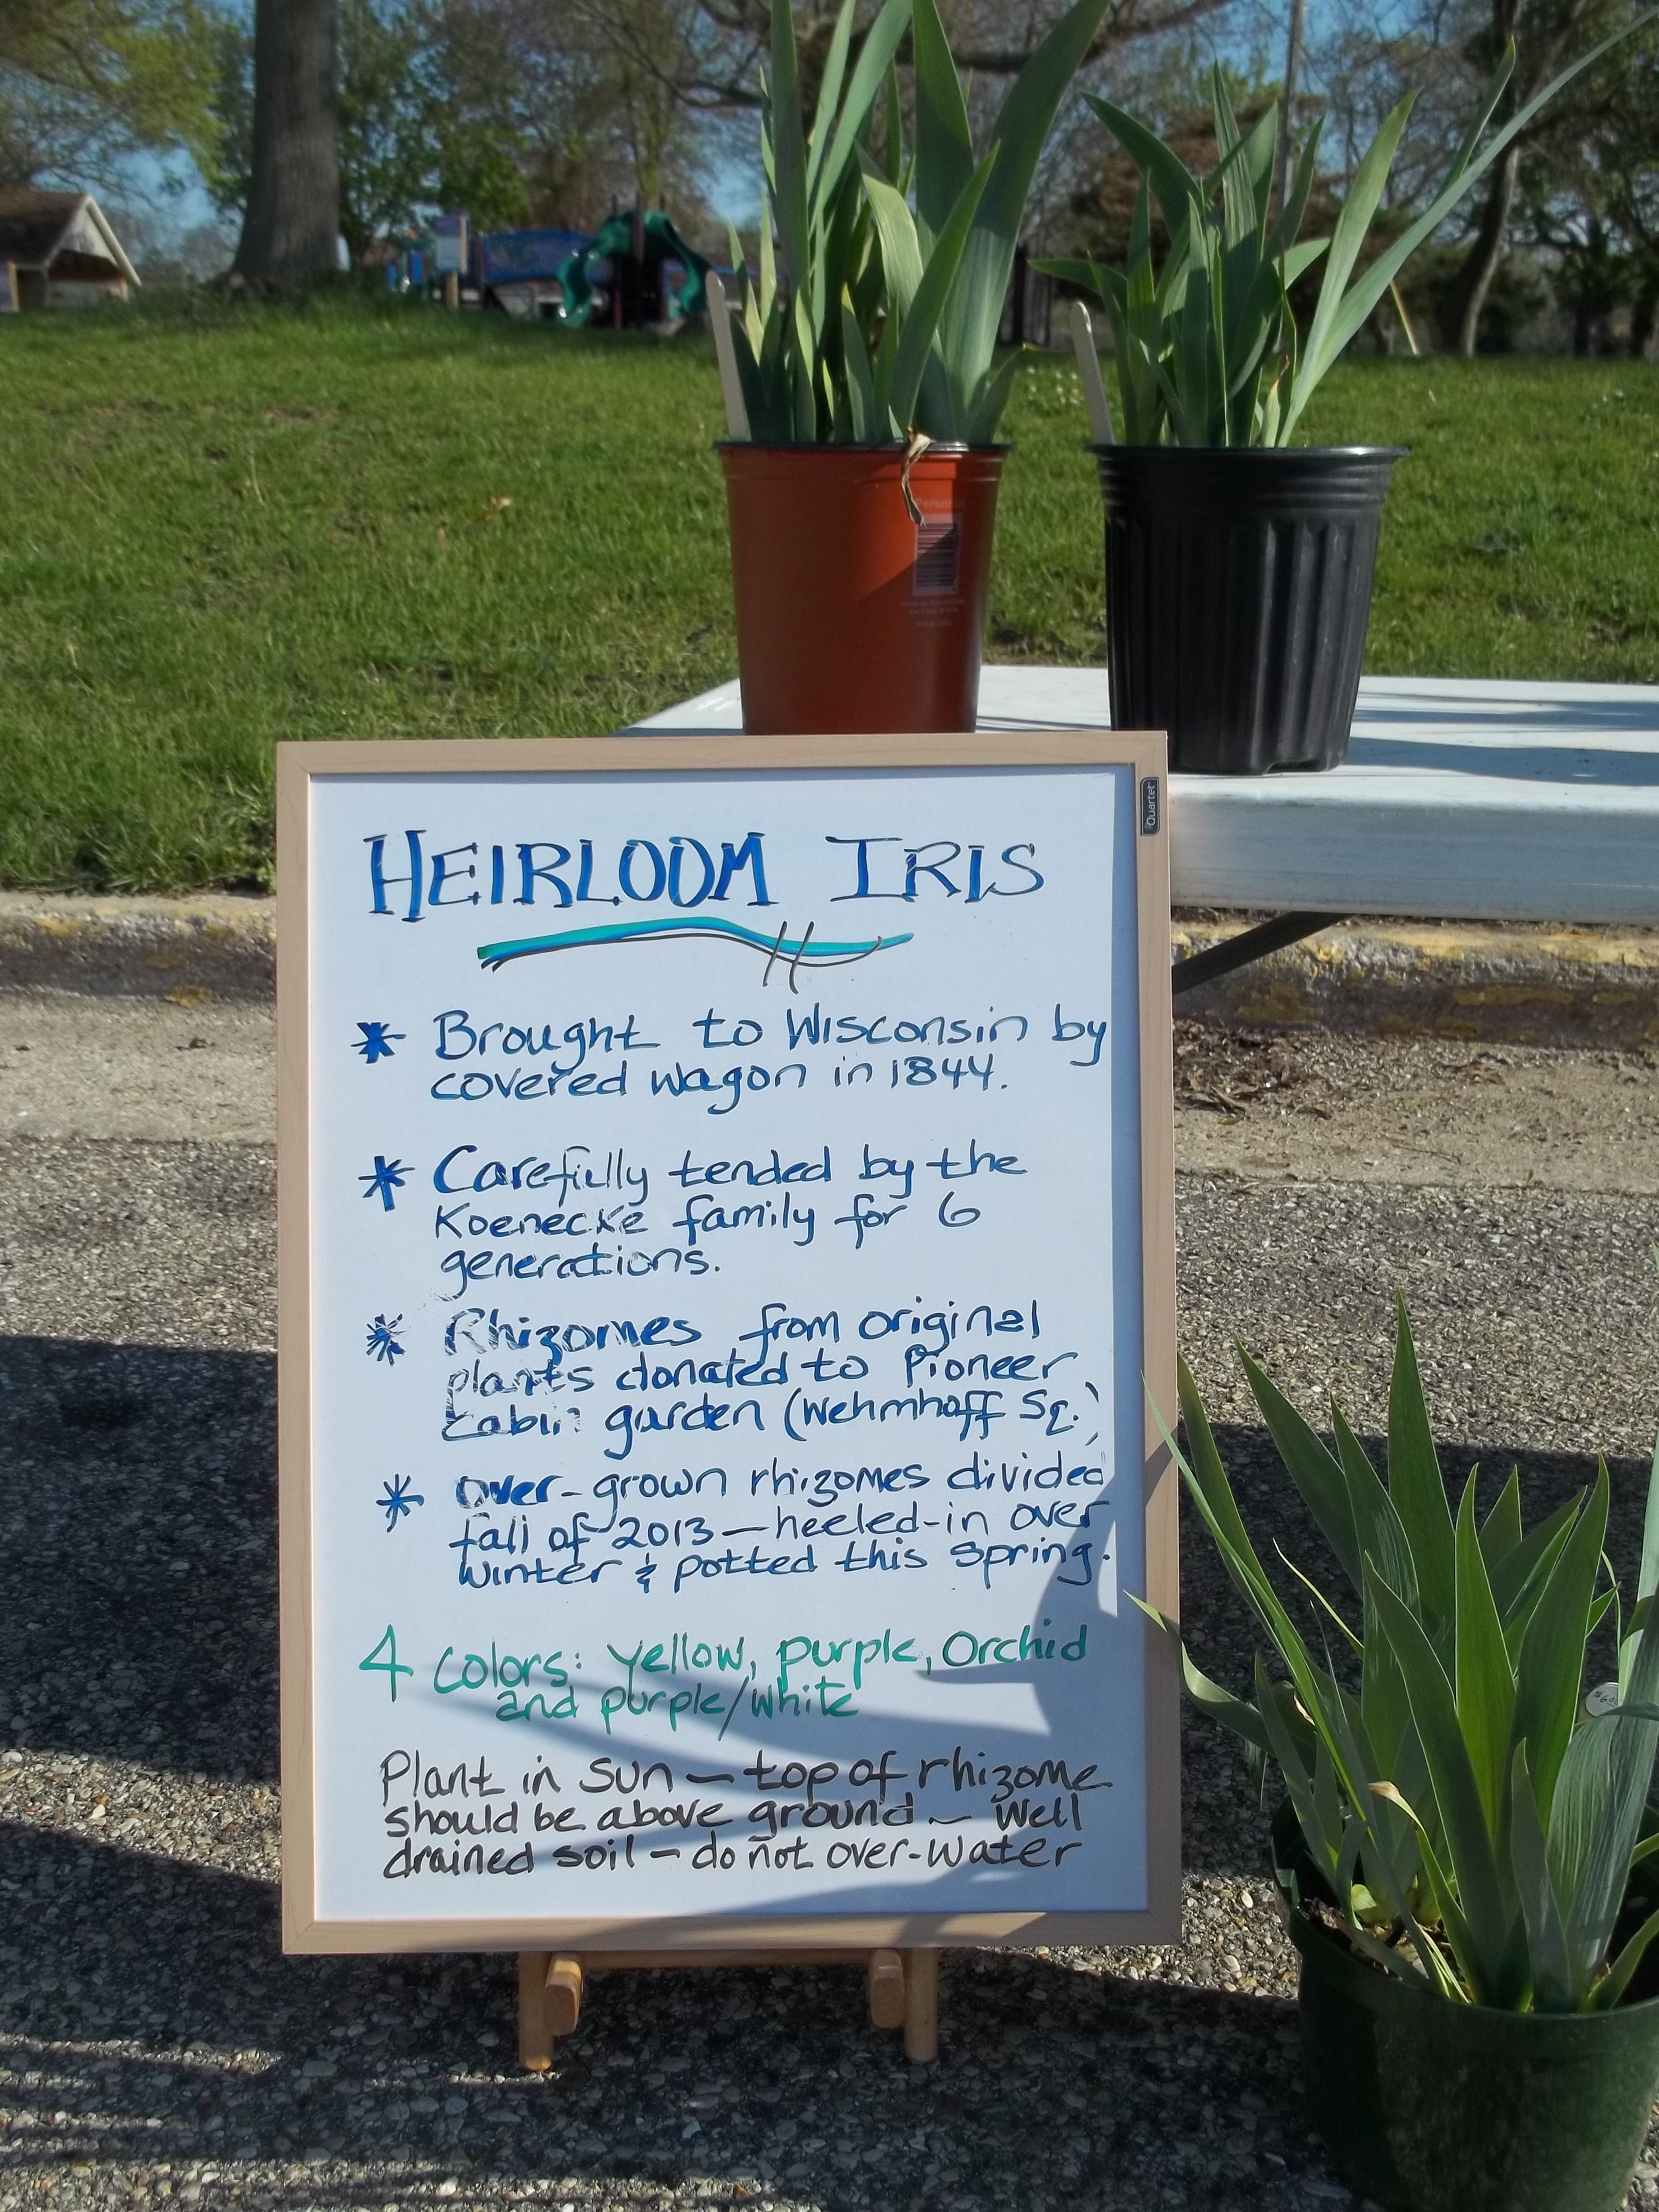 Quartet
HEIRLOOM IRIS
* Brought to Wisconsin by
covered wagon in 1844.
* Carefully tended by the
Koenecke family for 6
generations.
* Rhizomes from original
plants donated to Pioneer
Cabin garden (Wehmhoff Sq.)
* Over-grown rhizomes divided
fall of 2013 — heeled-in over
winter & potted this spring.
4 colors: yellow, purple, Orchid
and purple/white
Plant in sun — top of rhizome
should be above ground — well
drained soil — do not over-water